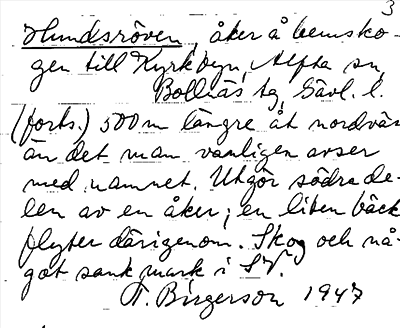 3
Hundsröven, åker å hemsko-
gen till Kyrkbyn, Alfta sn,
Bollnäs tg, Gävl. l.
(forts.) 500 m längre åt nordväs
än det man vanligen avser
med namnet. Utgör södra de-
len av en åker; en liten bäck
flyter därigenom. Skog och nå-
got sank mark i SV.
T. Birgerson 1947